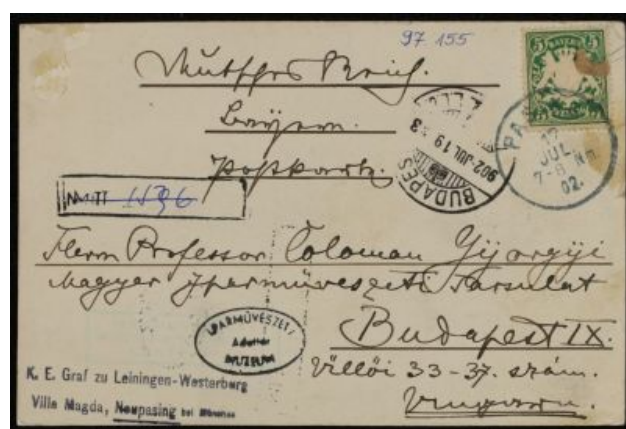 97 155
5 BAYERN 5
Deutsches Reich.
Bayern.
Postkarte.
BUDAPEST
902 JUL 19
PA
17
JUL.
7-8 Nm.
02.
MTT 1196
Herrn Professor Coloman Györgyi
Magyar Iparművészeti Társulat
Budapest IX.
Üllői 33-37. szám.
Ungarn.
IPARMŰVÉSZETI
Adattár
MUZEUM
K. E. Graf zu Leiningen-Westerburg
Villa Magda, Neupasing bei München